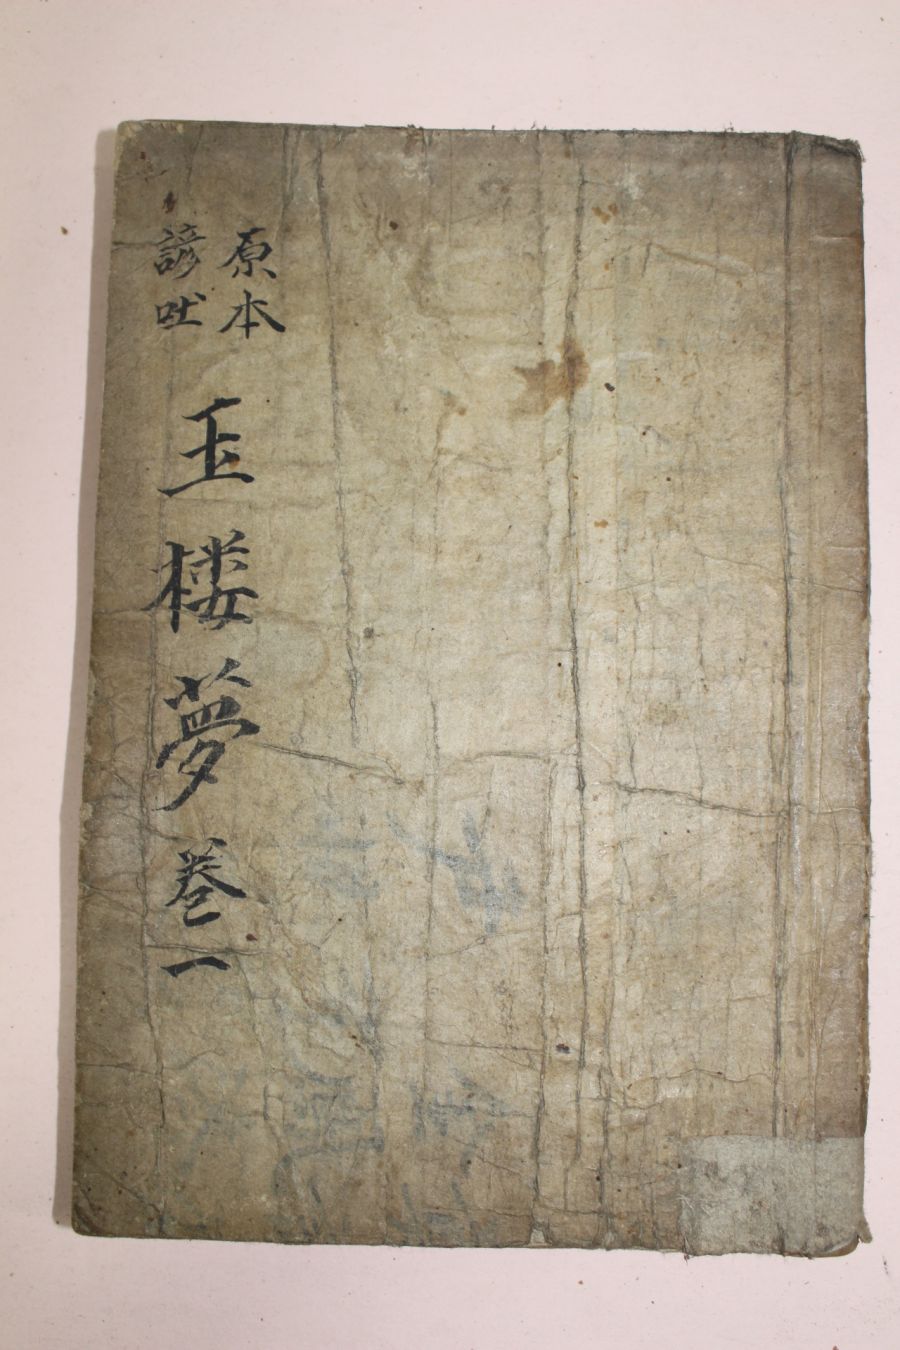 原本
諺吐
玉楼夢 巻一